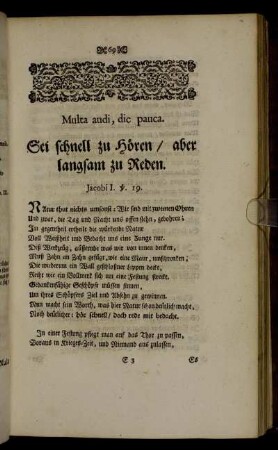 69
Multa audi, dic pauca.
Sei schnell zu Hören / aber
langsam zu Reden.
Jacobi I. ℣. 19.
Natur thut nichts umsonst: Wir sind mit zweien Ohren
Und zwar, die Tag und Nacht uns offen stehn, gebohren;
Im gegentheil ertheilt die würkende Natur
Voll Weißheit und Bedacht uns eine Zunge nur.
Diß Werkzeug, aussprache was wir von innen denken,
Muß Zahn an Zahn gefügt, wie eine Maur, umschrenken;
Die wiederum ein Wall geschloßner Lippen deckt,
Nicht wie ein Bollwerk sich um eine Festung streckt.
Gedankensfähige Geschöpfe müssen sinnen,
Um ihres Schöpfers Ziel und Absicht zu gewinnen.
Man wacht sein Wort, was hier Natur so handgreiflich macht,
Noch deutlicher: hör schnell / doch rede mit bedacht.
In einer Festung pflegt man auf das Thor zu passen,
Voraus in Krieges-Zeit, und Niemand aus zulassen,
E 3
Es